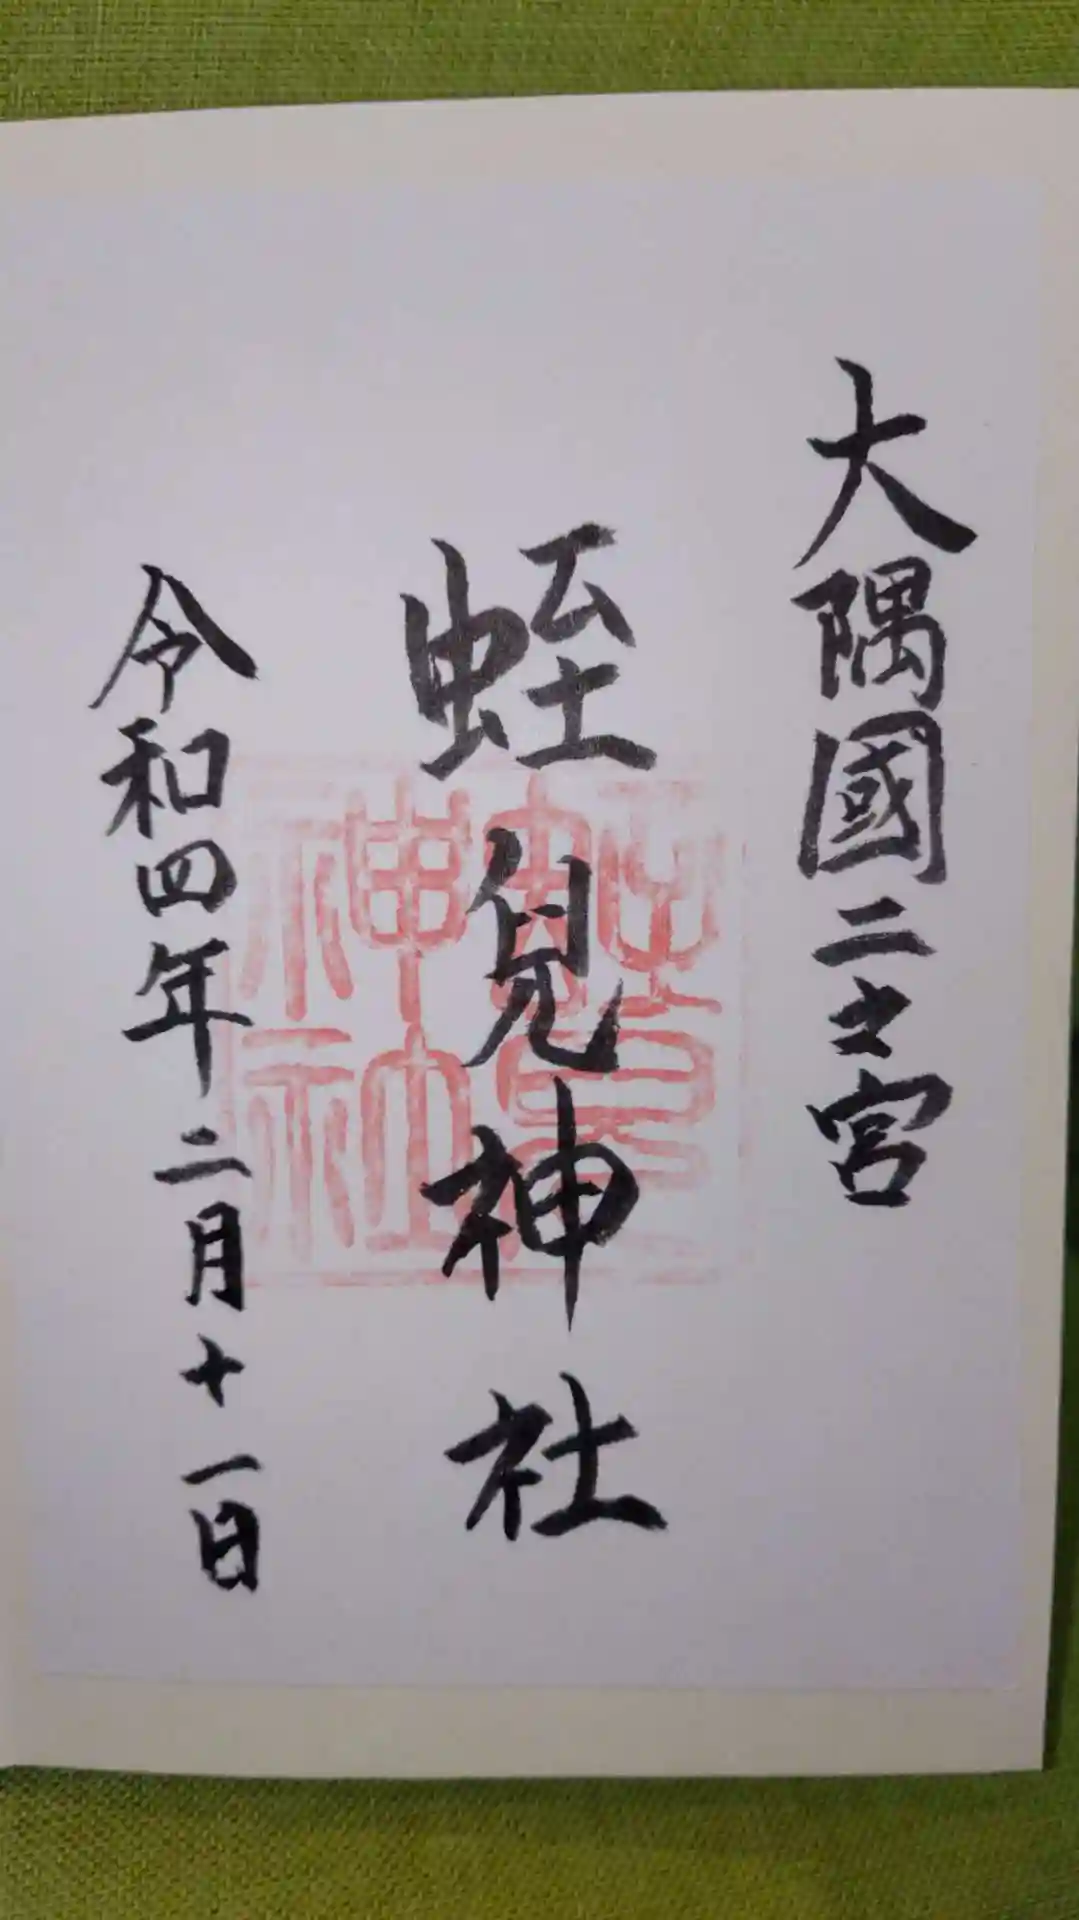 大隅國二之宮
蛭兒神社
令和四年二月十一日
蛭兒神社